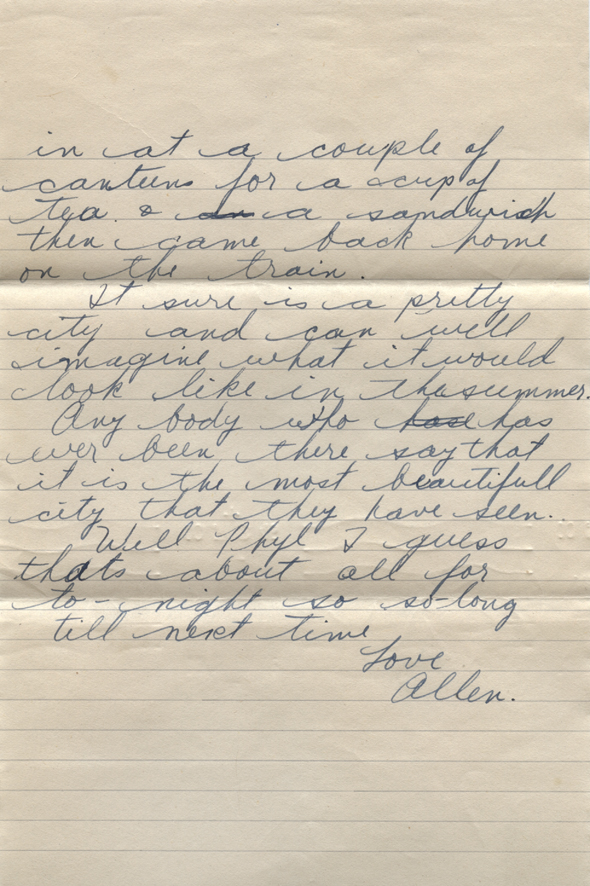 in at a couple of
canteens for a cup of
tea & a sandwich
then came back home
on the train.
It sure is a pretty
city and can well
imagine what it would
look like in the summer.
Any body who has
ever been there say that
it is the most beautifull
city that they have seen.
Well Phyl I guess
thats about all for
to-night so so-long
till next time
Love
Allen.